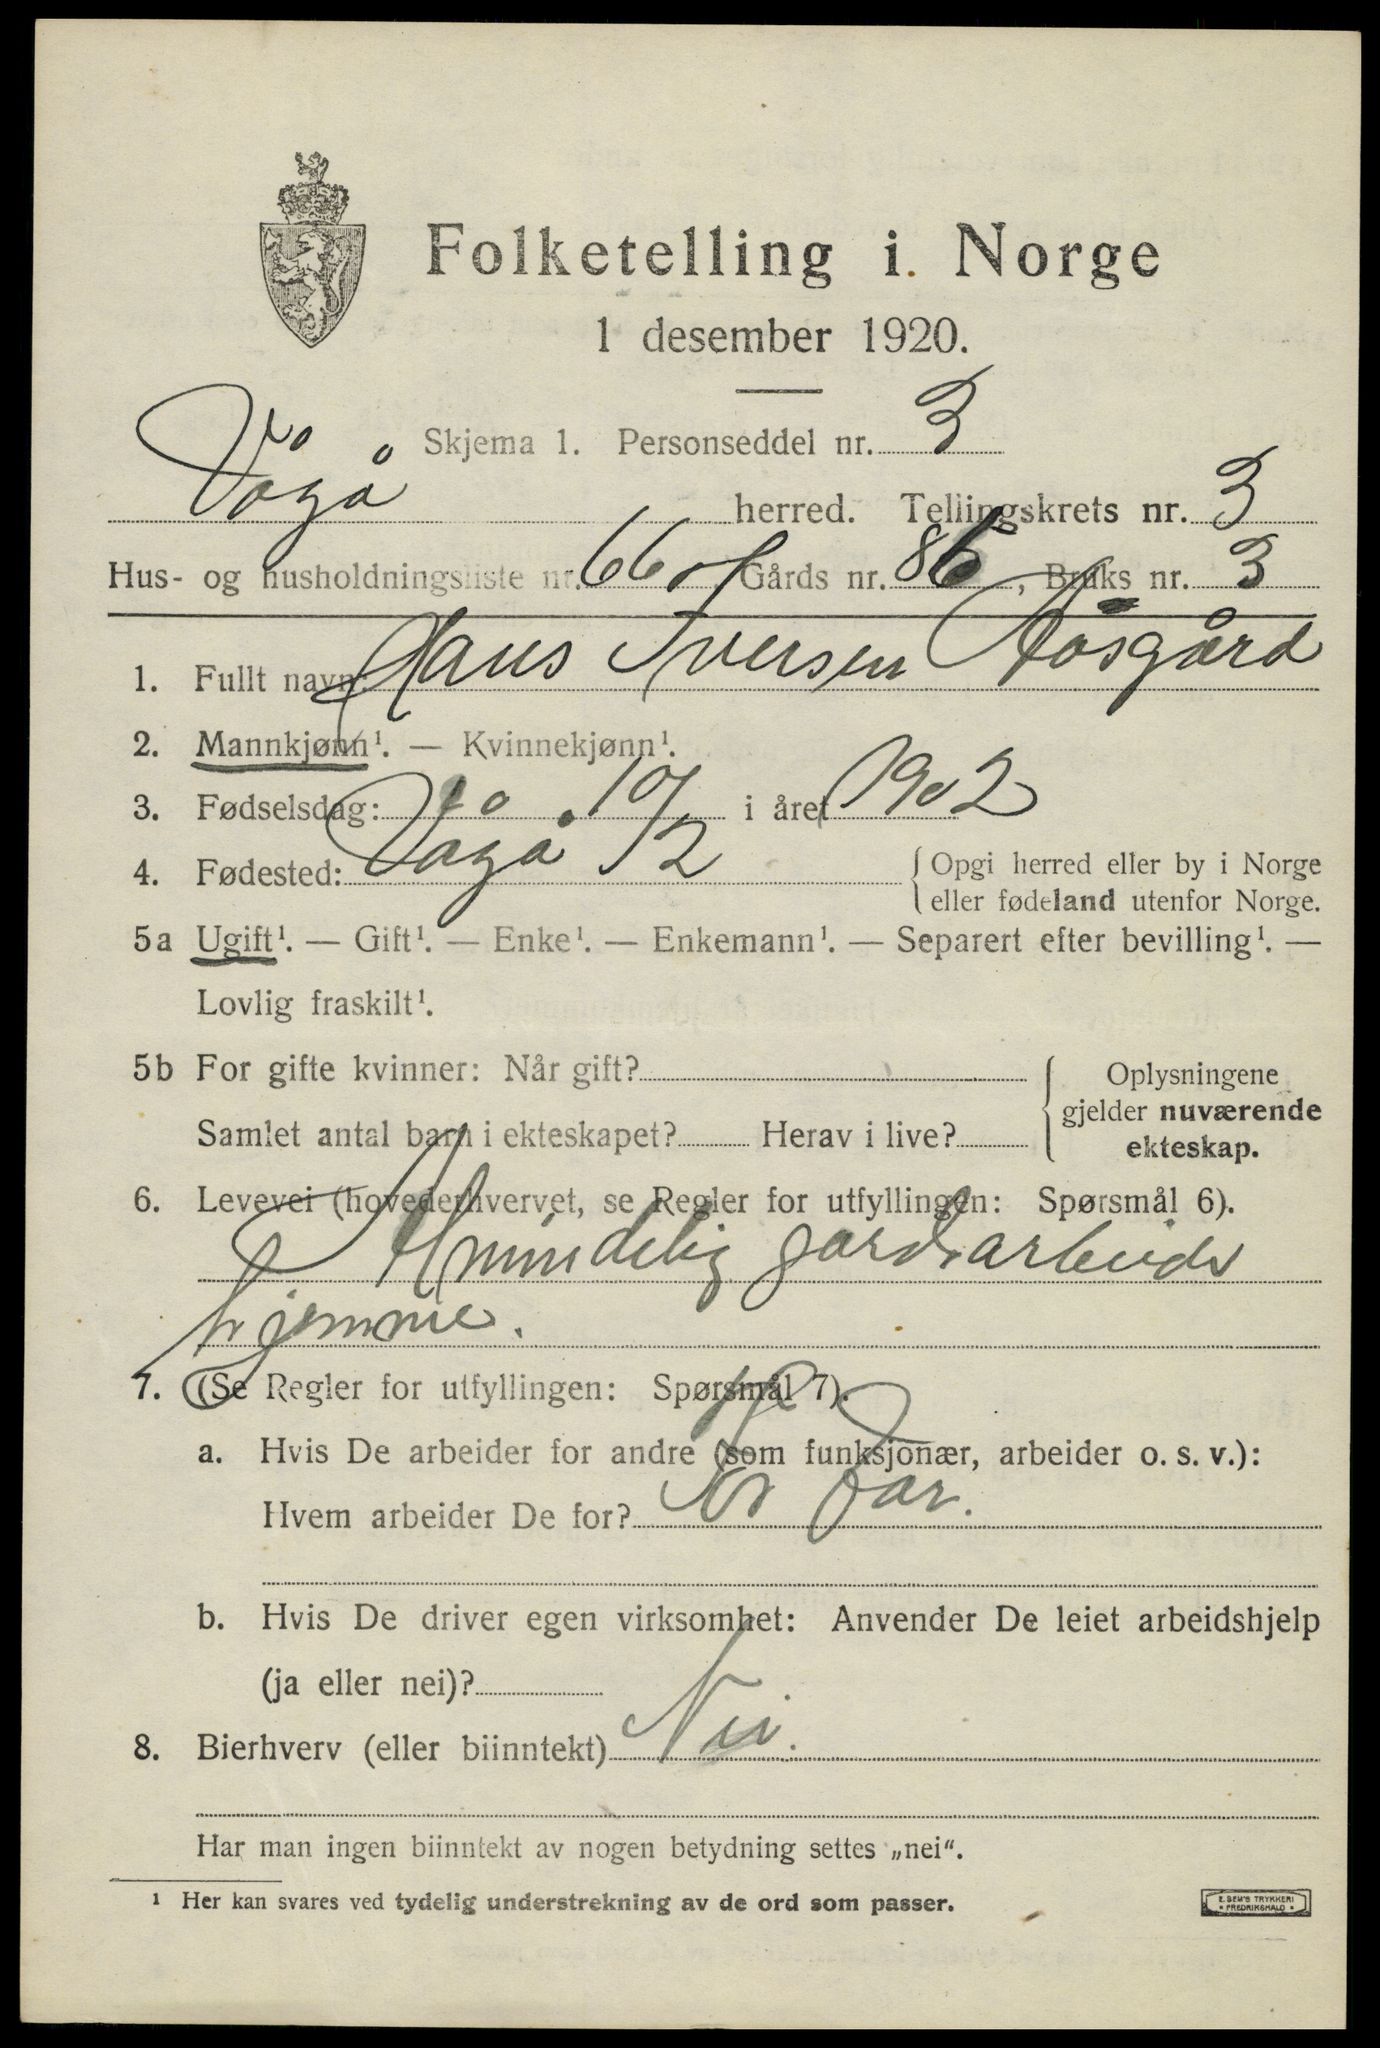 Folketelling i Norge
1 desember 1920.
Skjema 1. Personseddel nr. 3
Vågå herred. Tellingskrets nr. 3
Hus- og husholdningsliste nr. 66 Gårds nr. 86, Bruks nr. 3
1. Fullt navn: Hans Iversen Åsgård
2. Mannkjønn¹. — Kvinnekjønn¹.
3. Fødselsdag: 10/2 i året 1902
4. Fødested: Vågå { Opgi herred eller by i Norge
eller fødeland utenfor Norge.
5a Ugift¹. — Gift¹. — Enke¹. — Enkemann¹. — Separert efter bevilling¹. —
Lovlig fraskilt¹.
5b For gifte kvinner: Når gift?
Samlet antal barn i ekteskapet? Herav i live?
{ Oplysningene
gjelder nuværende
ekteskap.
6. Levevei (hovederhvervet, se Regler for utfyllingen: Spørsmål 6).
Almindelig gardsarbeide
hjemme.
7. (Se Regler for utfyllingen: Spørsmål 7).
a. Hvis De arbeider for andre (som funksjonær, arbeider o. s. v.):
Hvem arbeider De for? for Far.
b. Hvis De driver egen virksomhet: Anvender De leiet arbeidshjelp
(ja eller nei)?
8. Bierhverv (eller biinntekt) Nei.
Har man ingen biinntekt av nogen betydning settes „nei“.
¹ Her kan svares ved tydelig understrekning av de ord som passer.
E. SEM'S TRYKKERI
FREDRIKSHALD